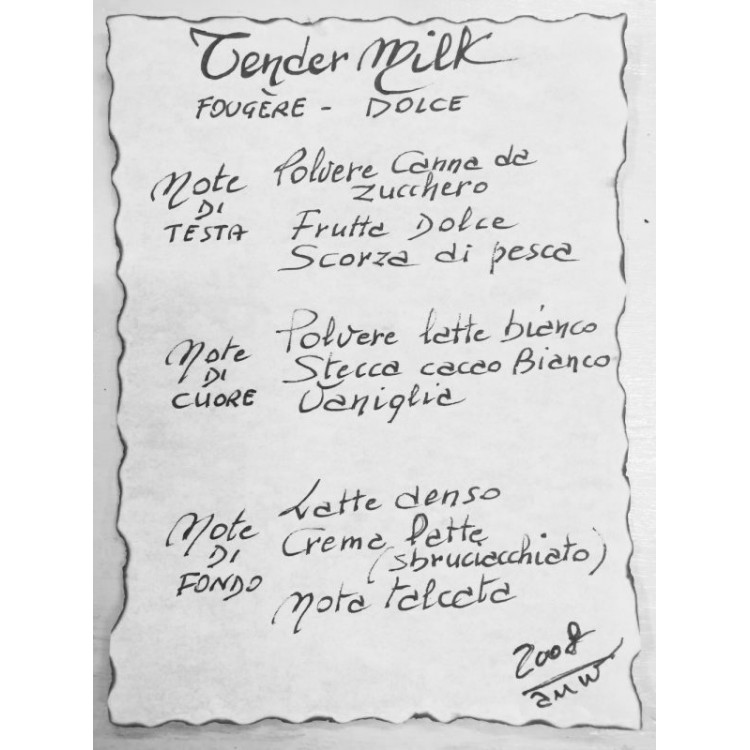 Tender Milk
FOUGÈRE - DOLCE
Note
DI
TESTA
Polvere Canna da
zucchero
Frutta Dolce
Scorza di pesca
Note
DI
CUORE
Polvere latte bianco
Stecca cacao Bianco
Vaniglia
Note
DI
FONDO
Latte denso
Crema latte
(sbruciacchiato)
Nota talcata
2008